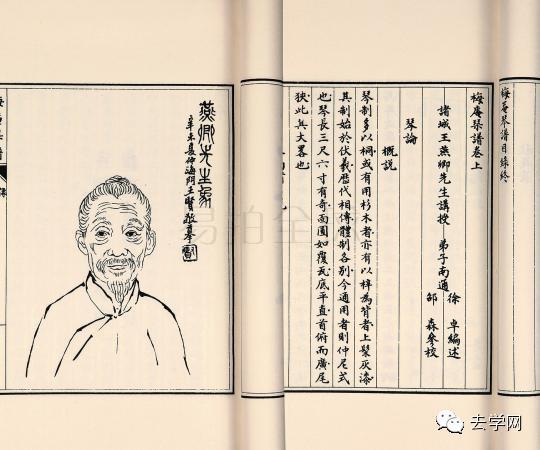 梅庵琴譜目錄終
梅庵琴譜卷上
諸城王燕卿先生講授 弟子南通 徐 卓編述
邵 森參校
琴論
概說
琴制多以桐或有用杉木者亦有以梓為背者上髹灰漆
其制始於伏羲歷代相傳體制各別今通用者則仲尼式
也琴長三尺六寸有奇面圓如覆瓦底平直首俯而廣尾
狹此其大畧也
燕卿先生象
辛未夏仲海門王賢敬摹
去学网